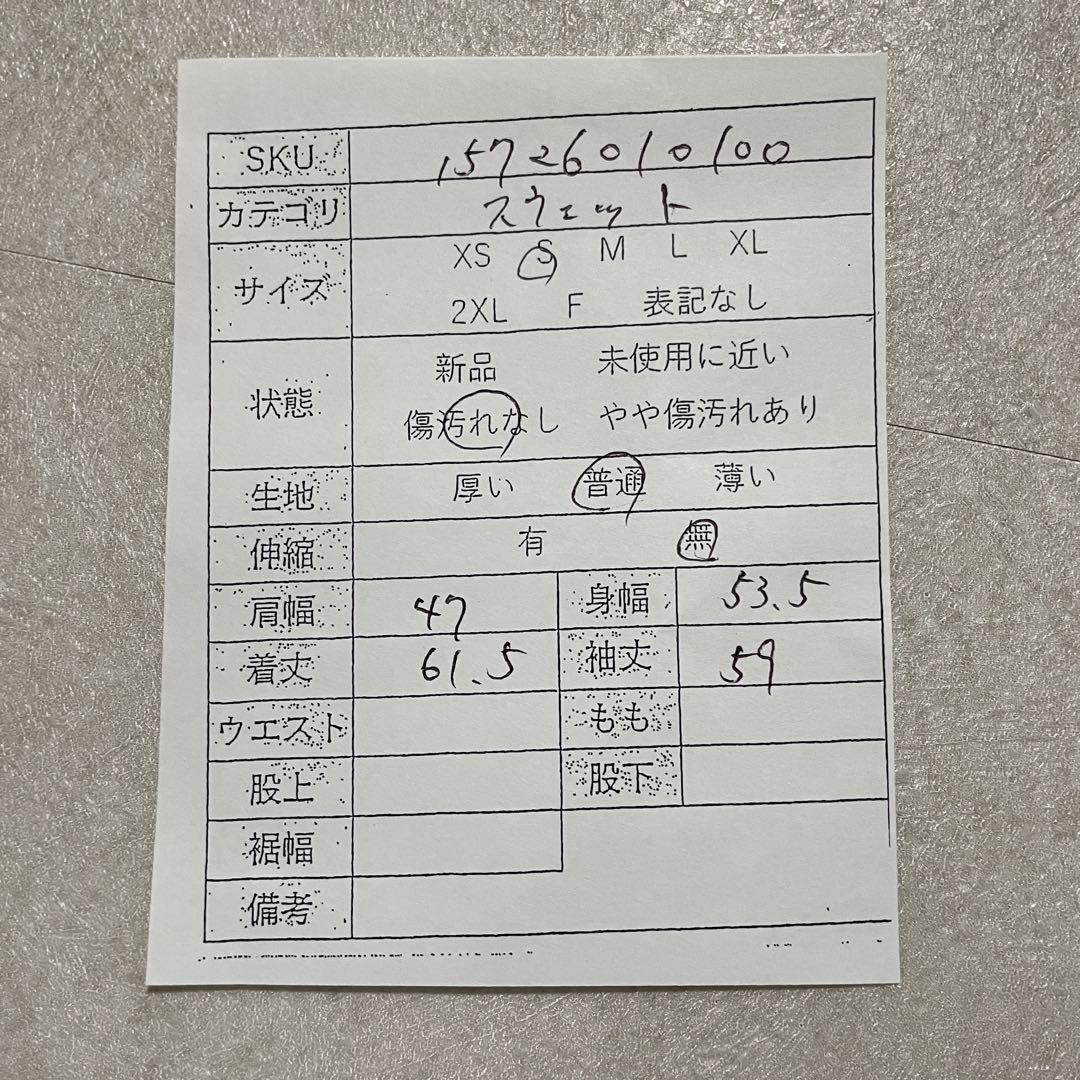 SKU 15726010100
カテゴリ スウェット
サイズ XS S M L XL
2XL F 表記なし
状態 新品 未使用に近い
傷汚れなし やや傷汚れあり
生地 厚い 普通 薄い
伸縮 有 無
肩幅 47 身幅 53.5
着丈 61.5 袖丈 59
ウエスト もも
股上 股下
裾幅
備考